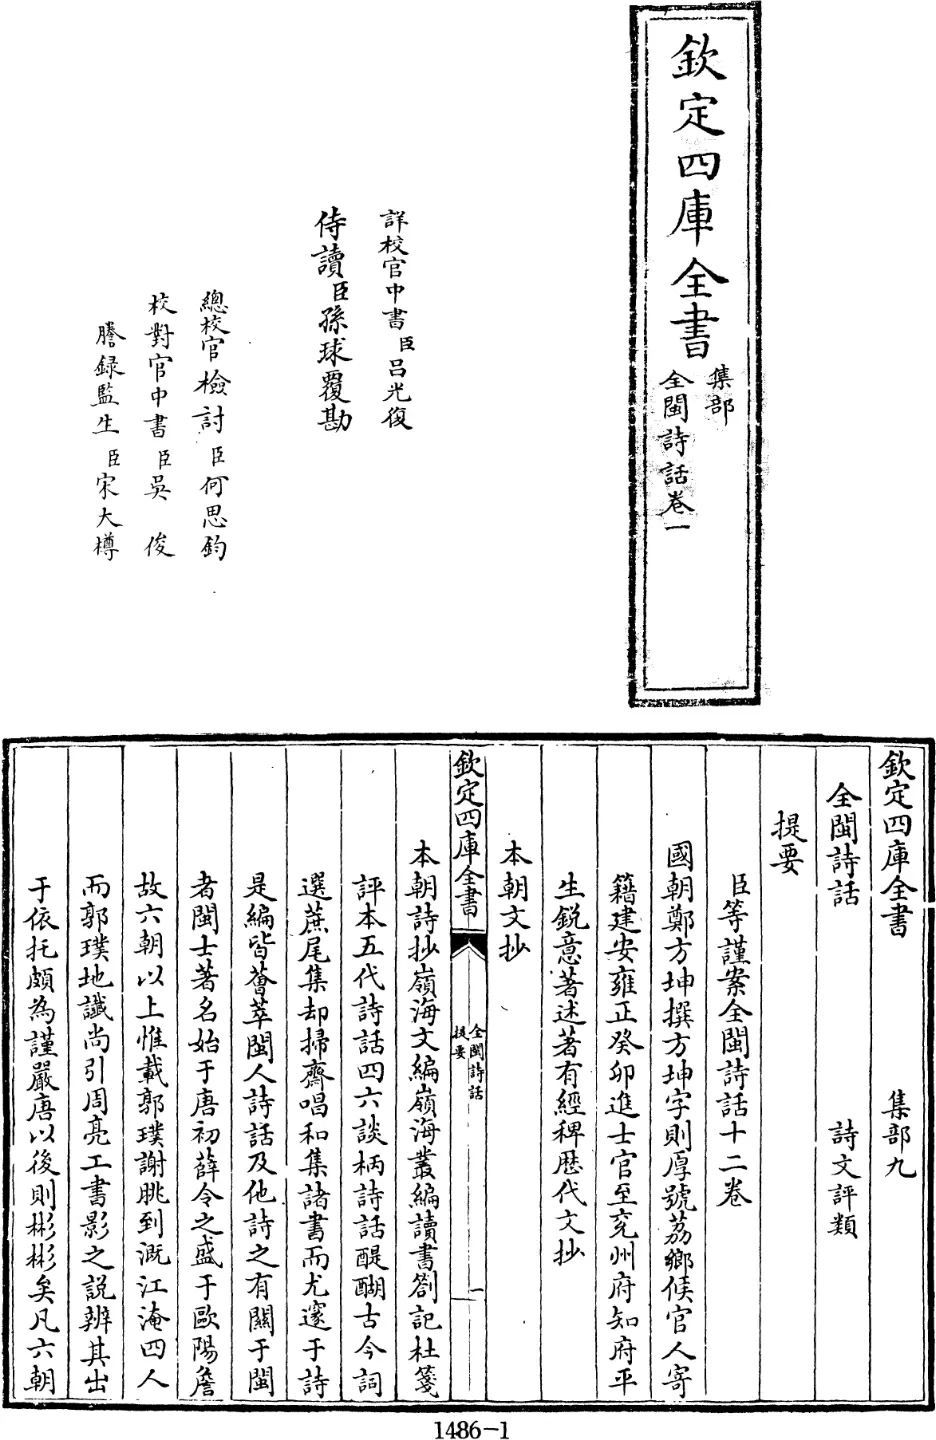 欽定四庫全書
集部
全閩詩話卷一
詳校官中書臣呂光復
侍讀臣孫球覆勘
總校官檢討臣何思鈞
校對官中書臣吳俊
謄錄監生臣宋大樽
欽定四庫全書 集部九
全閩詩話 詩文評類
提要
臣等謹案全閩詩話十二卷
國朝鄭方坤撰方坤字則厚號荔鄉候官人寄
籍建安雍正癸卯進士官至兖州府知府平
生鋭意著述著有經稗歴代文抄
本朝文抄
欽定四庫全書
全閩詩話
提要
一
本朝詩抄嶺海文編嶺海叢編讀書劄記杜箋
評本五代詩話四六談柄詩話醍醐古今詞
選蔗尾集却掃齋唱和集諸書而尤邃于詩
是編皆薈萃閩人詩話及他詩之有關于閩
者閩士著名始于唐初薛令之盛于歐陽詹
故六朝以上惟載郭璞謝朓到溉江淹四人
而郭璞地讖尚引周亮工書影之説辨其出
于依托頗為謹嚴唐以後則彬彬矣凡六朝
1486-1